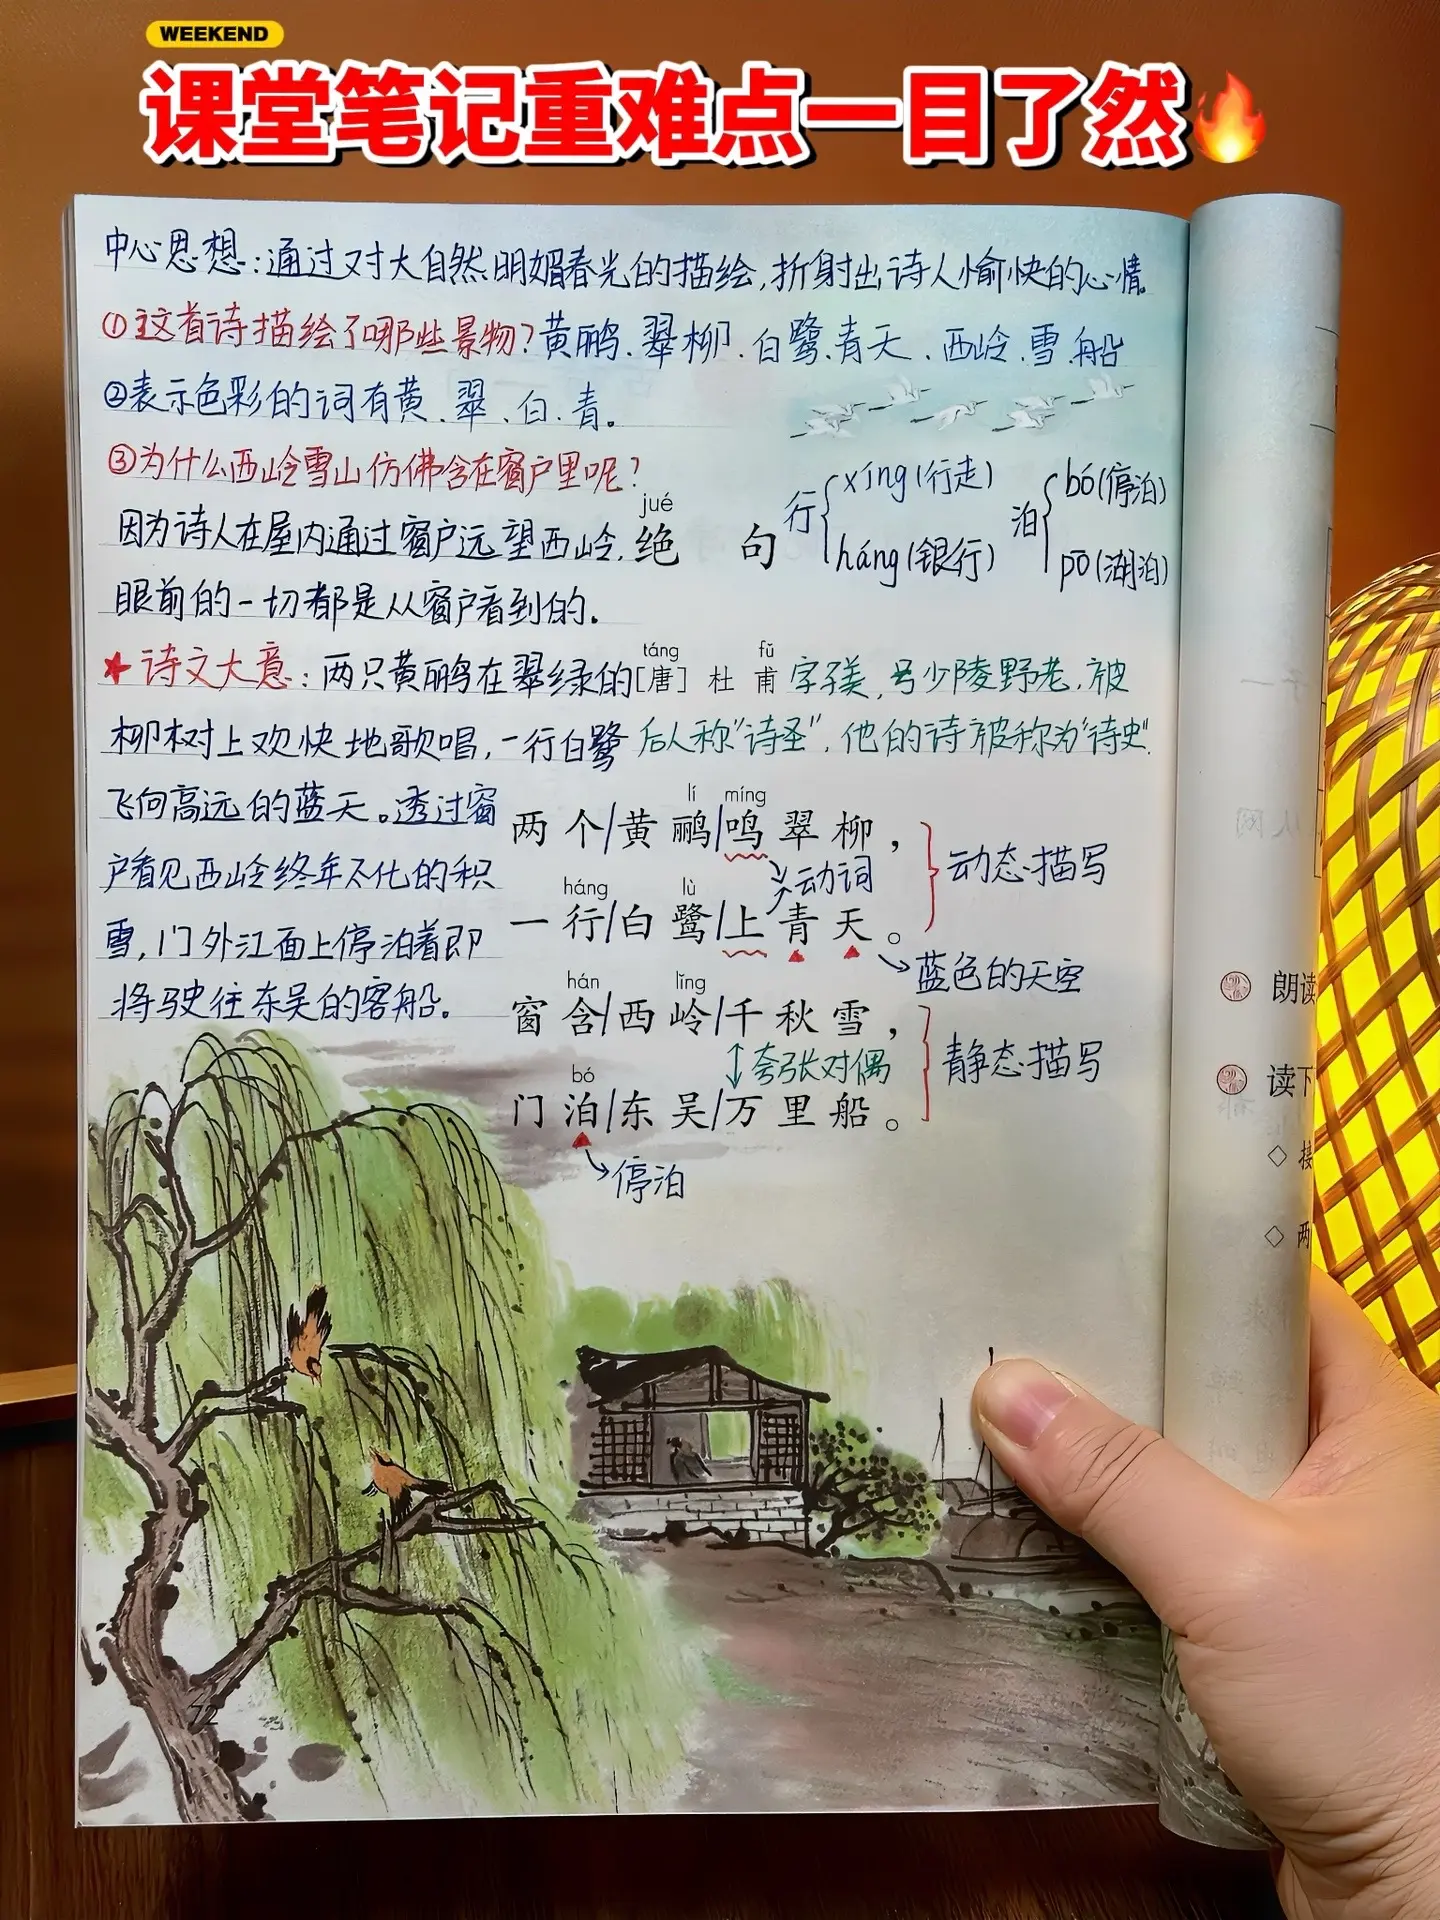 WEEKEND
课堂笔记重难点一目了然
中心思想:通过对大自然明媚春光的描绘,折射出诗人愉快的心情。
①这首诗描绘了哪些景物?黄鹂、翠柳、白鹭、青天、西岭、雪、船
②表示色彩的词有黄、翠、白、青。
③为什么西岭雪山仿佛含在窗户里呢?
因为诗人在屋内通过窗户远望西岭,
眼前的一切都是从窗户看到的。
jué
绝 句
行 xíng(行走)
háng(银行)
泊 bó(停泊)
pō(湖泊)
★诗文大意:两只黄鹂在翠绿的
柳树上欢快地歌唱,一行白鹭
飞向高远的蓝天。透过窗
户看见西岭终年不化的积
雪,门外江面上停泊着即
将驶往东吴的客船。
táng fǔ
[唐] 杜 甫 字子美,号少陵野老,被
后人称"诗圣",他的诗被称为"诗史".
lí míng
两个/黄鹂/鸣翠柳,
动词
háng lù
一行/白鹭/上青天。
动态描写
蓝色的天空
hán lǐng
窗含/西岭/千秋雪,
夸张对偶
bó
门泊/东吴/万里船。
静态描写
停泊
72
朗读
读下
两